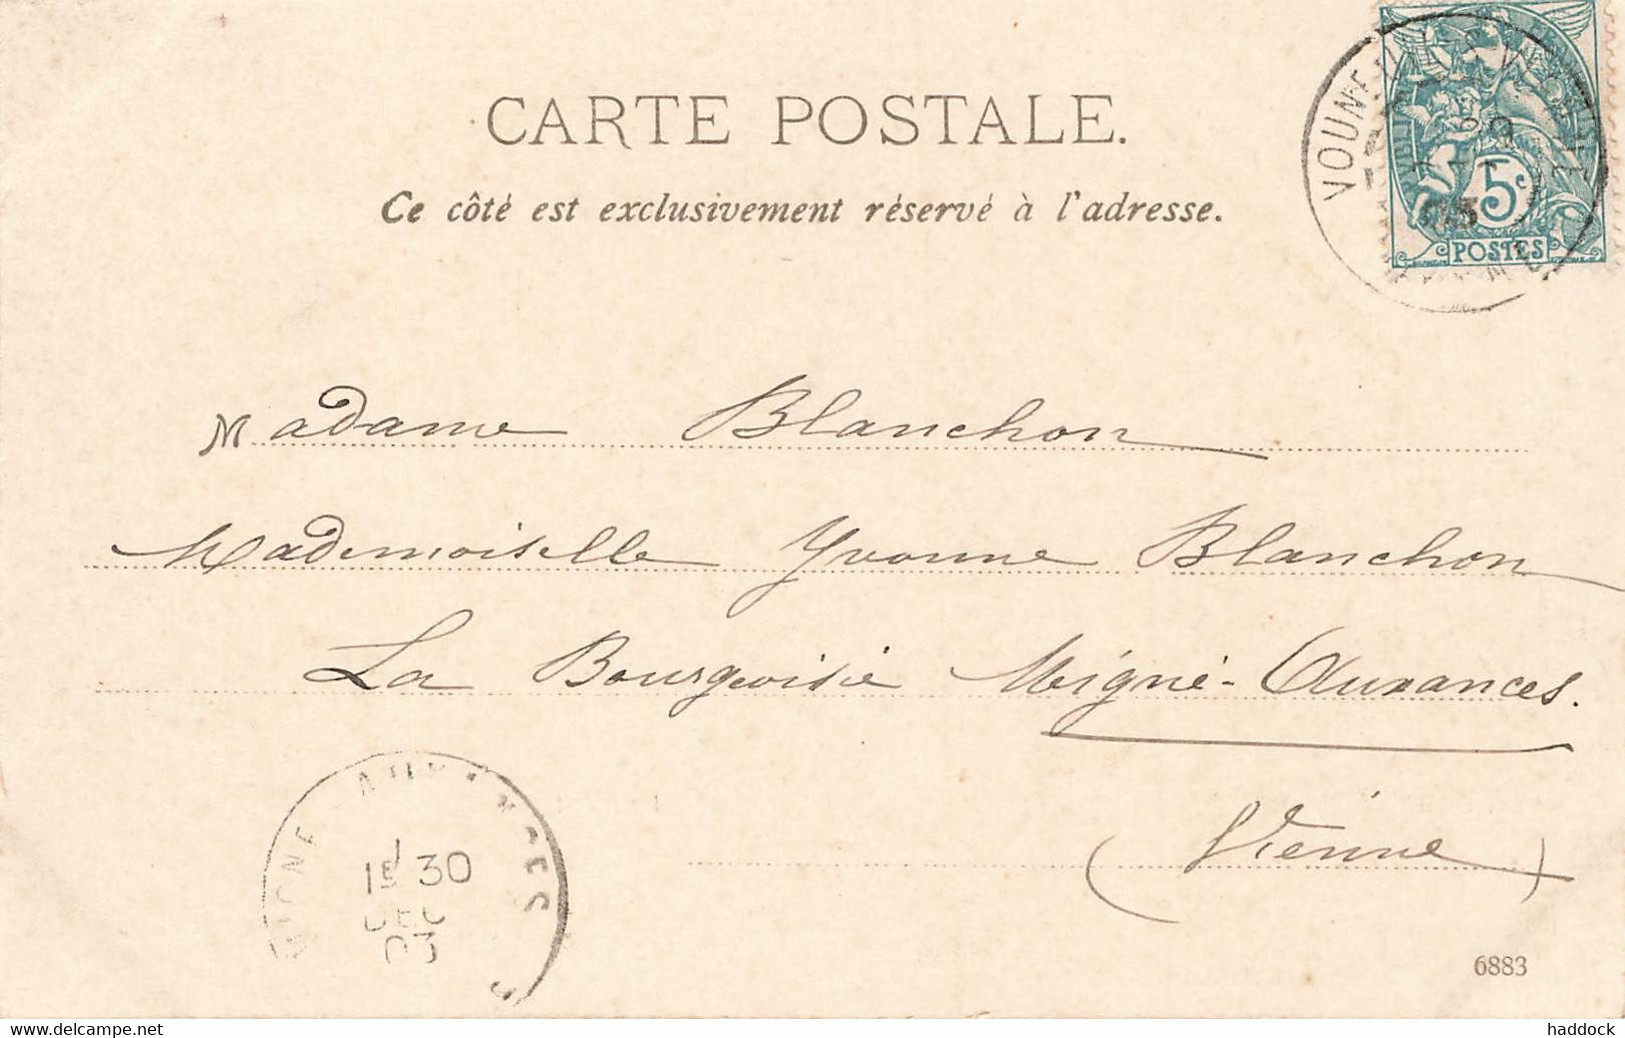 CARTE POSTALE.
Ce côté est exclusivement réservé à l'adresse.
VOUNEUIL
5c
POSTES
Madame Blanchon
Mademoiselle Yvonne Blanchon
La Bourgeoisie Migné-Auxances.
(Vienne)
MIGNE AUXANCES
1E 30
DEC
03
6883
www.delcampe.net
haddock